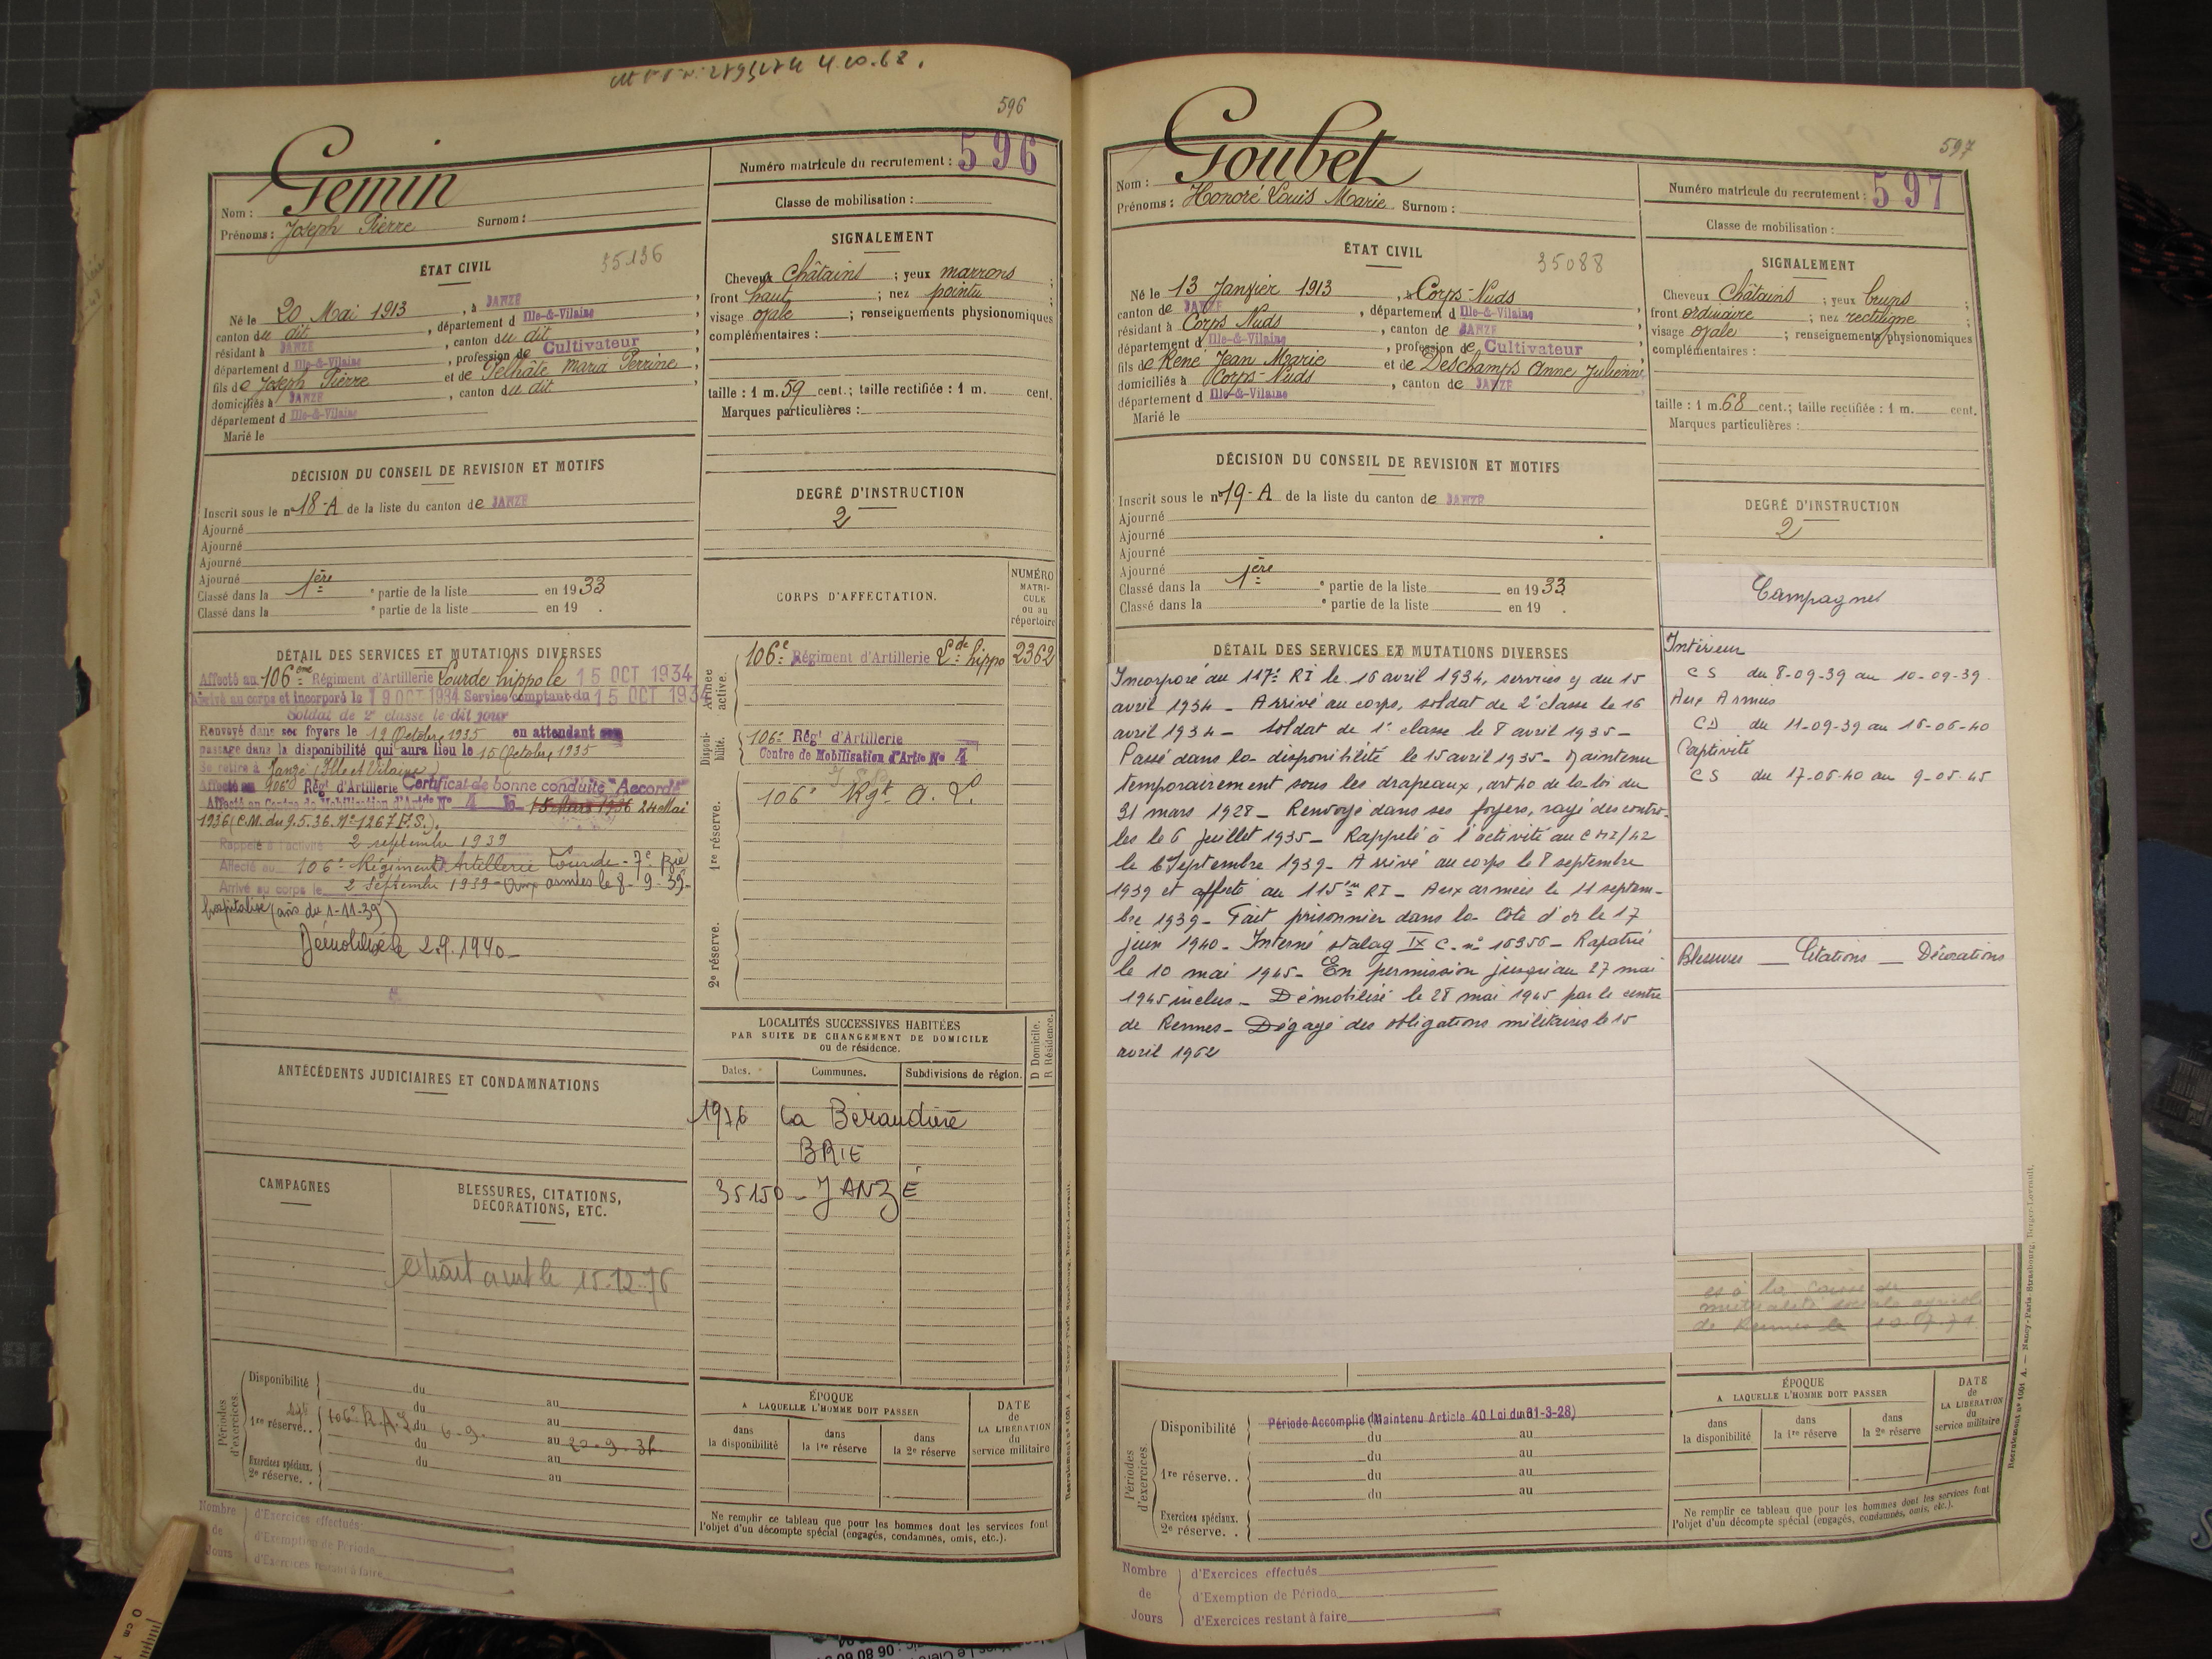 4.10.62.
596
Gemin
Nom :
Prénoms : Joseph Pierre Surnom :
Numéro matricule du recrutement : 596
Classe de mobilisation :
ÉTAT CIVIL
35136
Né le 20 Mai 1913, à JANZÉ
canton du dit, département d Ille-&-Vilaine,
résidant à JANZÉ, canton du dit
département d Ille-&-Vilaine, profession de Cultivateur,
fils de Joseph Pierre et de Pelhâte Maria Perrine,
domiciliés à JANZÉ, canton du dit
département d Ille-&-Vilaine
Marié le
SIGNALEMENT
Cheveux Châtains ; yeux marrons ;
front haut ; nez pointu ;
visage ovale ; renseignements physionomiques
complémentaires :
taille : 1 m. 59 cent.; taille rectifiée : 1 m. cent.
Marques particulières :
DÉCISION DU CONSEIL DE REVISION ET MOTIFS
Inscrit sous le n° 18-A de la liste du canton de JANZÉ
Ajourné
Ajourné
Ajourné
Ajourné
Classé dans la 1ère e partie de la liste en 1933
Classé dans la e partie de la liste en 19 .
DEGRÉ D'INSTRUCTION
2
CORPS D'AFFECTATION.
NUMÉRO
MATRI-
CULE
ou au
répertoire
Armée active.
106e Régiment d'Artillerie Lde hippo 2362
Disponi-
bilité.
106e Régt d'Artillerie
Centre de Mobilisation d'Artie No 4
1re réserve.
106e Rgt A. L.
2e réserve.
DÉTAIL DES SERVICES ET MUTATIONS DIVERSES
Affecté au 106ème Régiment d'Artillerie Lourde hippo le 15 OCT 1934
Arrivé au corps et incorporé le 19 OCT 1934 Service comptant du 15 OCT 1934
Soldat de 2e classe le dit jour
Renvoyé dans ses foyers le 12 Octobre 1935 en attendant son
passage dans la disponibilité qui aura lieu le 15 Octobre 1935
Se retire à Janzé (Ille et Vilaine)
Affecté au 106e Régt d'Artillerie Certificat de bonne conduite "Accordé"
Affecté au Centre de Mobilisation d'Artie No 4 le 15 Mars 1936 24 Mai
1936 (C.M. du 9.5.36. No 1267 F.S.).
Rappelé à l'activité 2 septembre 1939
Affecté au 106e Régiment Artillerie Lourde - 7e Bie
Arrivé au corps le 2 Septembre 1939 - Aux armées le 8-9-39-
hospitalisé (avis du 1-11-39)
Démobilisé le 2.9.1940 -
LOCALITÉS SUCCESSIVES HABITÉES
PAR SUITE DE CHANGEMENT DE DOMICILE
ou de résidence.
D Domicile.
R Résidence.
Dates. Communes. Subdivisions de région.
1976 La Béraudière
BRIE
35150 - JANZÉ
ANTÉCÉDENTS JUDICIAIRES ET CONDAMNATIONS
CAMPAGNES
BLESSURES, CITATIONS,
DÉCORATIONS, ETC.
15.12.76
Périodes d'exercices.
Disponibilité du au
1re réserve. . 106e R.A.L. du 6-9- au 20-9-38
du au
du au
Exercices spéciaux.
2e réserve. . au
ÉPOQUE
A LAQUELLE L'HOMME DOIT PASSER
dans
la disponibilité
dans
la 1re réserve
dans
la 2e réserve
DATE
de
LA LIBÉRATION
du
service militaire
Ne remplir ce tableau que pour les hommes dont les services font
l'objet d'un décompte spécial (engagés, condamnés, omis, etc.).
Nombre
de
Jours
d'Exercices effectués
d'Exemption de Période
d'Exercices restant à faire
597
Goubet
Nom :
Prénoms : Honoré Louis Marie Surnom :
Numéro matricule du recrutement : 597
Classe de mobilisation :
ÉTAT CIVIL
35088
Né le 13 Janvier 1913, à Corps-Nuds
canton de JANZÉ, département d Ille-&-Vilaine
résidant à Corps Nuds, canton de JANZÉ
département d Ille-&-Vilaine, profession de Cultivateur
fils de René Jean Marie et de Deschamps Anne Julienne
domiciliés à Corps-Nuds, canton de JANZÉ
département d Ille-&-Vilaine
Marié le
SIGNALEMENT
Cheveux Châtains ; yeux bruns ;
front ordinaire ; nez rectiligne ;
visage ovale ; renseignements physionomiques
complémentaires :
taille : 1 m. 68 cent.; taille rectifiée : 1 m. cent.
Marques particulières :
DÉCISION DU CONSEIL DE REVISION ET MOTIFS
Inscrit sous le n° 19-A de la liste du canton de JANZÉ
Ajourné
Ajourné
Ajourné
Ajourné
Classé dans la 1ère e partie de la liste en 1933
Classé dans la e partie de la liste en 19 .
DEGRÉ D'INSTRUCTION
2
DÉTAIL DES SERVICES ET MUTATIONS DIVERSES
Incorporé au 117e RI le 16 avril 1934, services y du 15
avril 1934 - Arrivé au corps, soldat de 2e classe le 16
avril 1934 - soldat de 1e classe le 8 avril 1935 -
Passé dans la disponibilité le 15 avril 1935 - Maintenu
temporairement sous les drapeaux, art 40 de la loi du
31 mars 1928 - Renvoyé dans ses foyers, rayé des contro-
les le 6 juillet 1935 - Rappelé à l'activité au CMI/42
le 6 Septembre 1939 - Arrivé au corps le 8 septembre
1939 et affecté au 115ème RI - Aux armées le 11 septem-
bre 1939 - Fait prisonnier dans la Côte d'or le 17
juin 1940 - Interné stalag IX C. n° 16356 - Rapatrié
le 10 mai 1945 - En permission jusqu'au 27 mai
1945 inclus - Démobilisé le 28 mai 1945 par le centre
de Rennes - Dégagé des obligations militaires le 15
avril 1962
Campagnes
Intérieur
CS du 8-09-39 au 10-09-39
Aux Armées
CD du 11-09-39 au 16-06-40
Captivité
CS du 17-06-40 au 9-05-45
Blessures _ Citations _ Décorations
de Rennes le
Périodes d'exercices.
Disponibilité Période Accomplie (Maintenu Article 40 Loi du 31-3-28)
du au
du au
1re réserve. . du au
du au
Exercices spéciaux.
2e réserve. .
ÉPOQUE
A LAQUELLE L'HOMME DOIT PASSER
dans
la disponibilité
dans
la 1re réserve
dans
la 2e réserve
DATE
de
LA LIBÉRATION
du
service militaire
Ne remplir ce tableau que pour les hommes dont les services font
l'objet d'un décompte spécial (engagés, condamnés, omis, etc.).
Nombre
de
Jours
d'Exercices effectués
d'Exemption de Période
d'Exercices restant à faire
0 cm